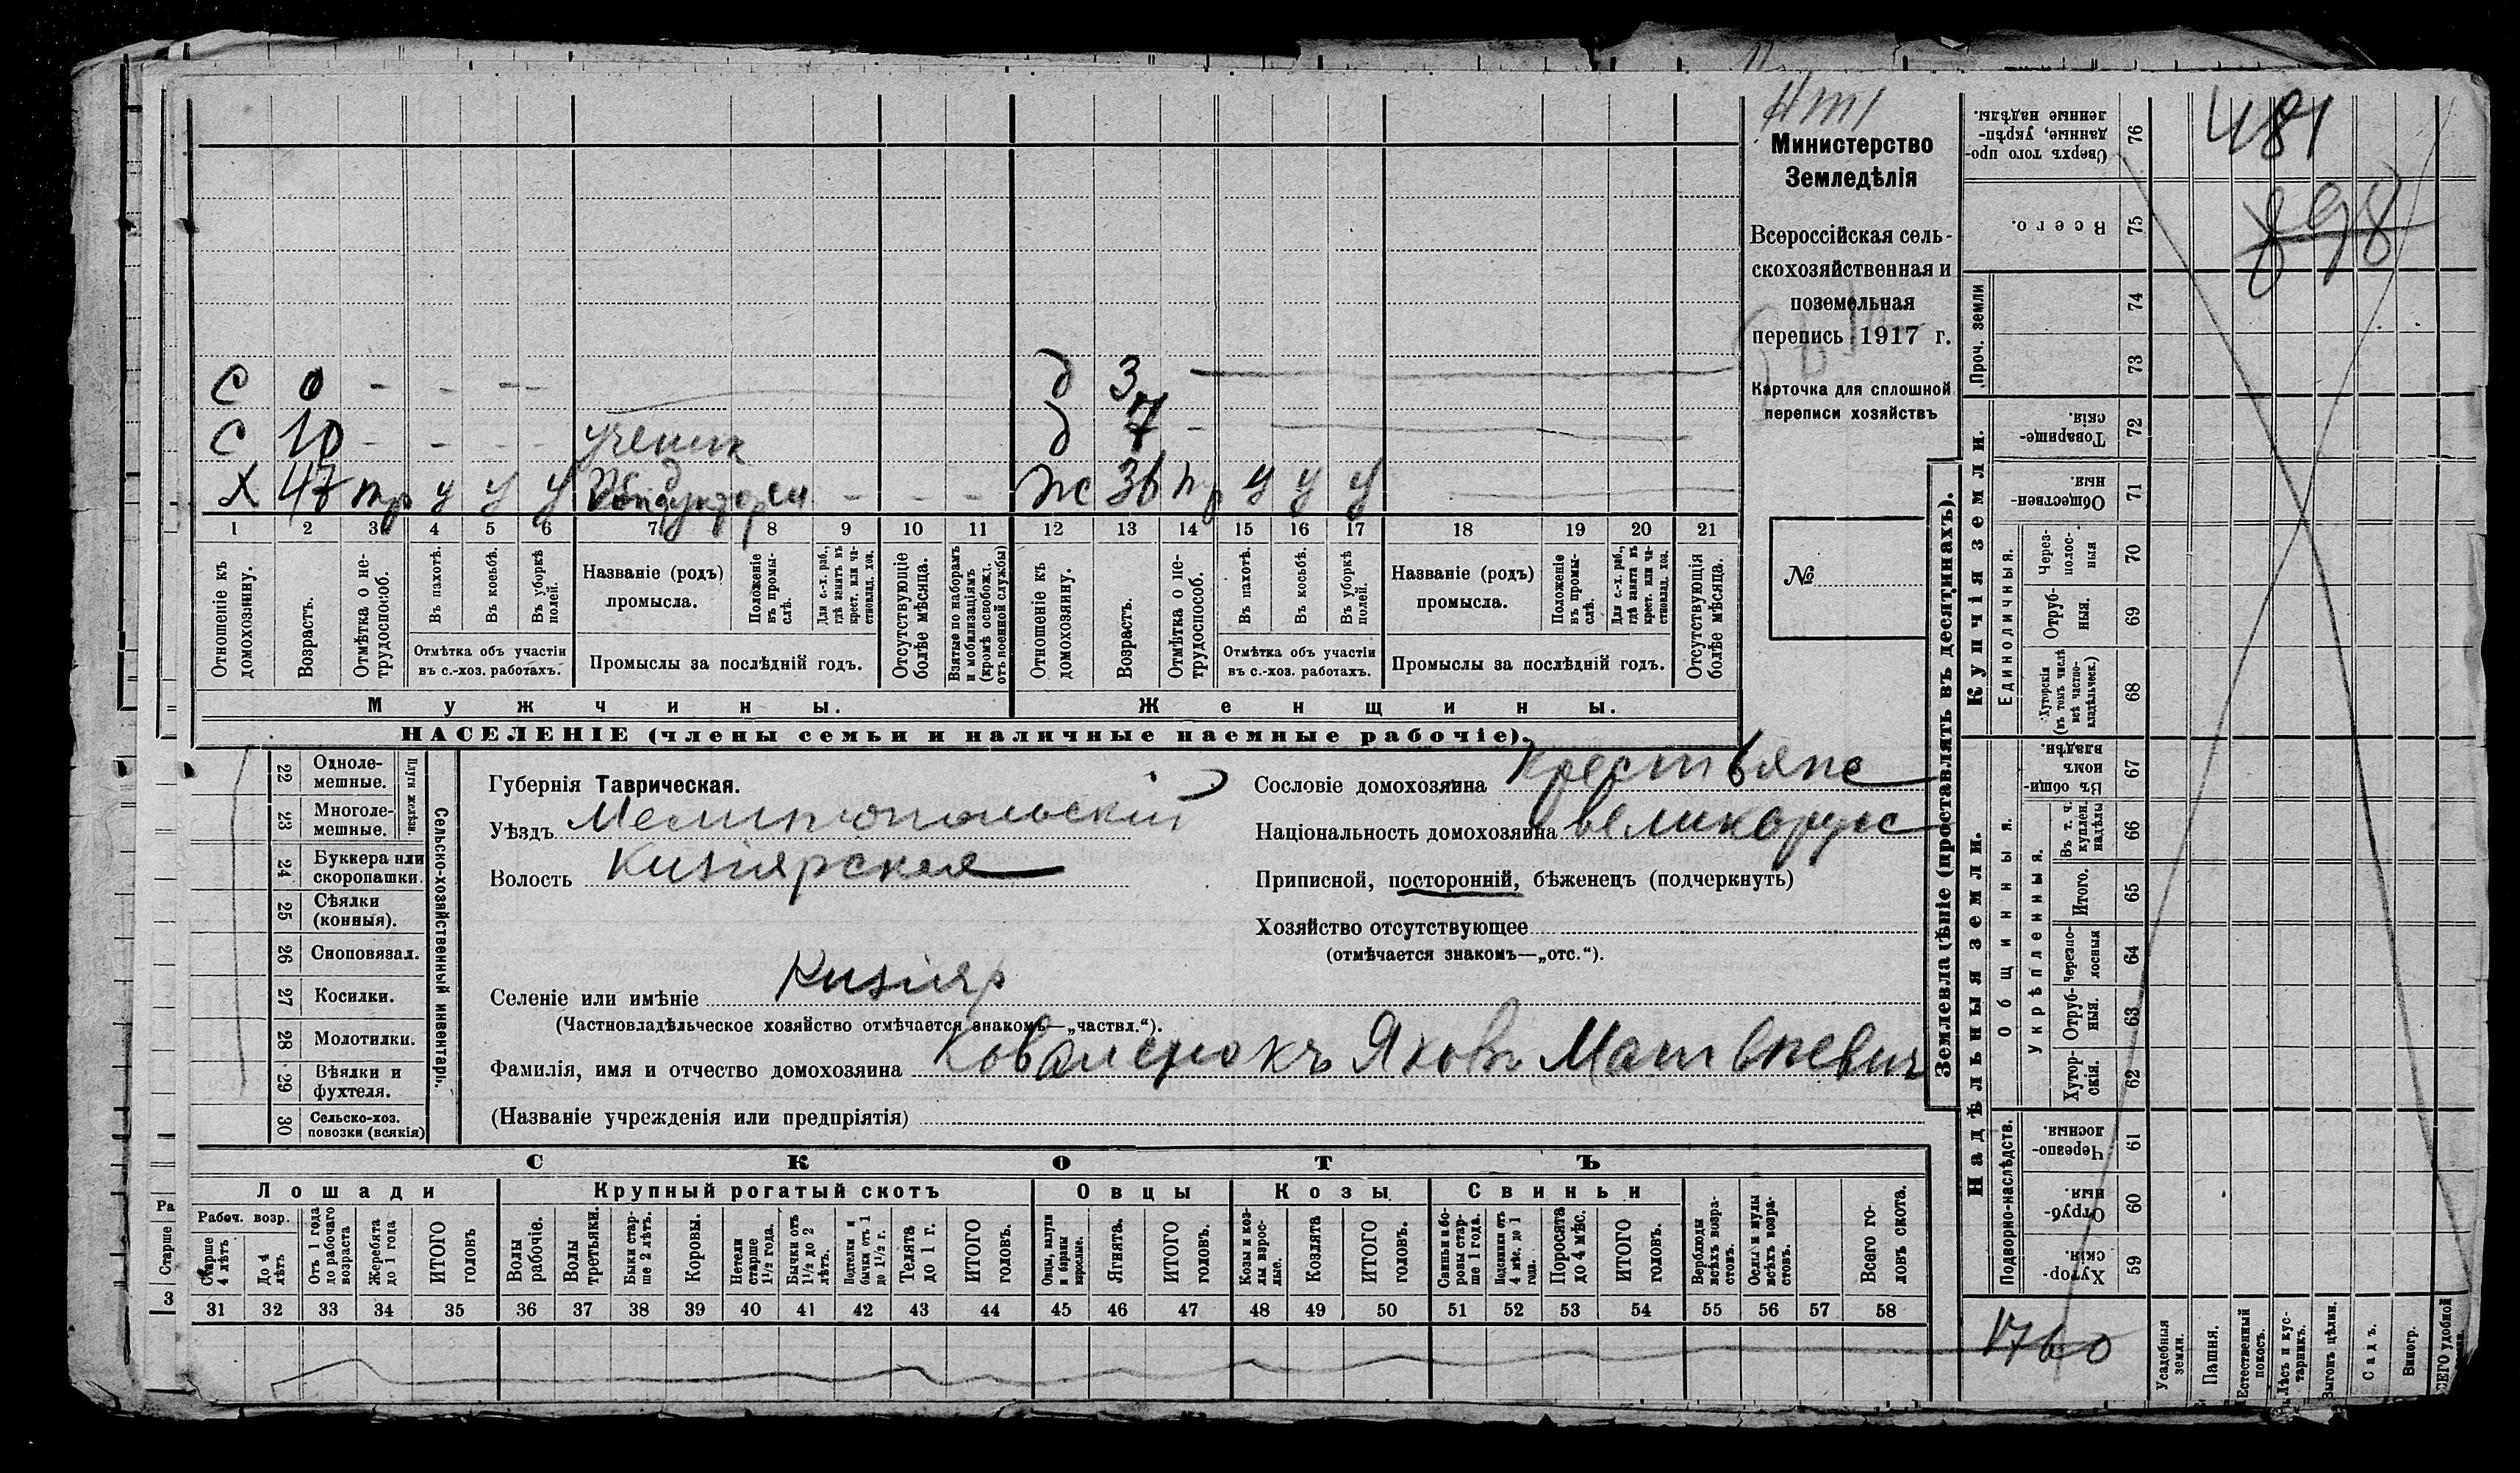 Министерство
Земледѣлія
Всероссійская сель-
скохозяйственная и
поземельная
перепись 1917 г.
Карточка для сплошной
переписи хозяйствъ
№
481
898
С 0 - - - -
С 10 - - - - ученик
Х 47 пр у у у Кондукторем - - -
д 3
д 7 -
ж 36 пр у у у
1 2 3 4 5 6 7 8 9 10 11 12 13 14 15 16 17 18 19 20 21
Отношеніе къ домохозяину.
Возрастъ.
Отмѣтка о не-трудоспособ.
Въ пахотѣ.
Въ косьбѣ.
Въ уборкѣ полей.
Отмѣтка объ участіи въ с.-хоз. работахъ.
Названіе (родъ) промысла.
Положеніе въ промы-слѣ.
Для с.-х. раб., гдѣ занятъ въ крест. или ча-стновлад. хоз.
Промыслы за послѣдній годъ.
Отсутствующіе болѣе мѣсяца.
Взятые по наборамъ и мобилизаціямъ (кромѣ освобожд. отъ военной службы)
Отношеніе къ домохозяину.
Возрастъ.
Отмѣтка о не-трудоспособ.
Въ пахотѣ.
Въ косьбѣ.
Въ уборкѣ полей.
Отмѣтка объ участіи въ с.-хоз. работахъ.
Названіе (родъ) промысла.
Положеніе въ промы-слѣ.
Для с.-х. раб., гдѣ занята въ крест. или ча-стновлад. хоз.
Промыслы за послѣдній годъ.
Отсутствующія болѣе мѣсяца.
Мужчины.
Женщины.
НАСЕЛЕНІЕ (члены семьи и наличные наемные рабочіе).
Сельско-хозяйственный инвентарь.
Плуги желѣзн.
22 Одноле-мешные.
23 Многоле-мешные.
24 Буккера или скоропашки.
25 Сѣялки (конныя).
26 Сноповязал.
27 Косилки.
28 Молотилки.
29 Вѣялки и фухтеля.
30 Сельско-хоз. повозки (всякія)
Губернія Таврическая.
Уѣздъ Мелитопольскій
Волость Кизіярская
Селеніе или имѣніе Кизіяр
(Частновладѣльческое хозяйство отмѣчается знакомъ—„частвл.“).
Сословіе домохозяина крестьяне
Національность домохозяина великорус
Приписной, посторонній, бѣженецъ (подчеркнуть)
Хозяйство отсутствующее
(отмѣчается знакомъ—„отс.“).
Фамилія, имя и отчество домохозяина Коваленокъ Яковъ Матвѣевич
(Названіе учрежденія или предпріятія)
СКОТЪ
Лошади
Крупный рогатый скотъ
Овцы
Козы
Свиньи
Рабоч. возр.
Старше 4 лѣтъ
До 4 лѣтъ
Отъ 1 года до рабочаго возраста
Жеребята до 1 года
ИТОГО головъ
Волы рабочіе.
Волы третьяки.
Быки стар-ше 2 лѣтъ.
Коровы.
Нетели старше 1½ года.
Бычки отъ 1½ до 2 лѣтъ.
Подтелки и бычки отъ 1 до 1½ г.
Телята до 1 г.
ИТОГО головъ.
Овцы, валухи и бараны взрослые.
Ягнята.
ИТОГО головъ.
Козы и коз-лы взрос-лые.
Козлята
ИТОГО головъ.
Свиньи и бо-ровы стар-ше 1 года.
Подсвинки отъ 4 мѣс. до 1 года.
Поросята до 4 мѣс.
ИТОГО головъ.
Верблюды всѣхъ возра-стовъ.
Ослы и мулы всѣхъ возра-стовъ.
Всего го-ловъ скота.
31 32 33 34 35 36 37 38 39 40 41 42 43 44 45 46 47 48 49 50 51 52 53 54 55 56 57 58
Землевладѣніе (проставлять въ десятинахъ).
Купчія земли.
Надѣльныя земли.
Сверхъ того про-данные, укрѣп-ленные надѣлы. 76
Всего. 75
Проч. земли
74
73
Товарище-скія. 72
Обществен-ныя 71
Единоличныя.
Через-полос-ныя 70
Отруб-ныя. 69
Хуторскія (въ томъ числѣ всѣ частно-владѣльческ.) 68
Общинныя.
Въ общи-номъ владѣн. 67
Укрѣпленныя.
Въ т. ч. куплен. надѣлы 66
Итого. 65
Черезпо-лосныя 64
Отруб-ныя. 63
Хутор-скія. 62
Подворно-наслѣдств.
Черезпо-лосныя. 61
Отруб-ныя. 60
Хутор-скія 59
1760
Усадебныя земли.
Пашня.
Естественный покосъ.
Лѣсъ и кус-тарникъ.
Выгонъ цѣлин.
Садъ.
Виногр.
Ра
Старше
3